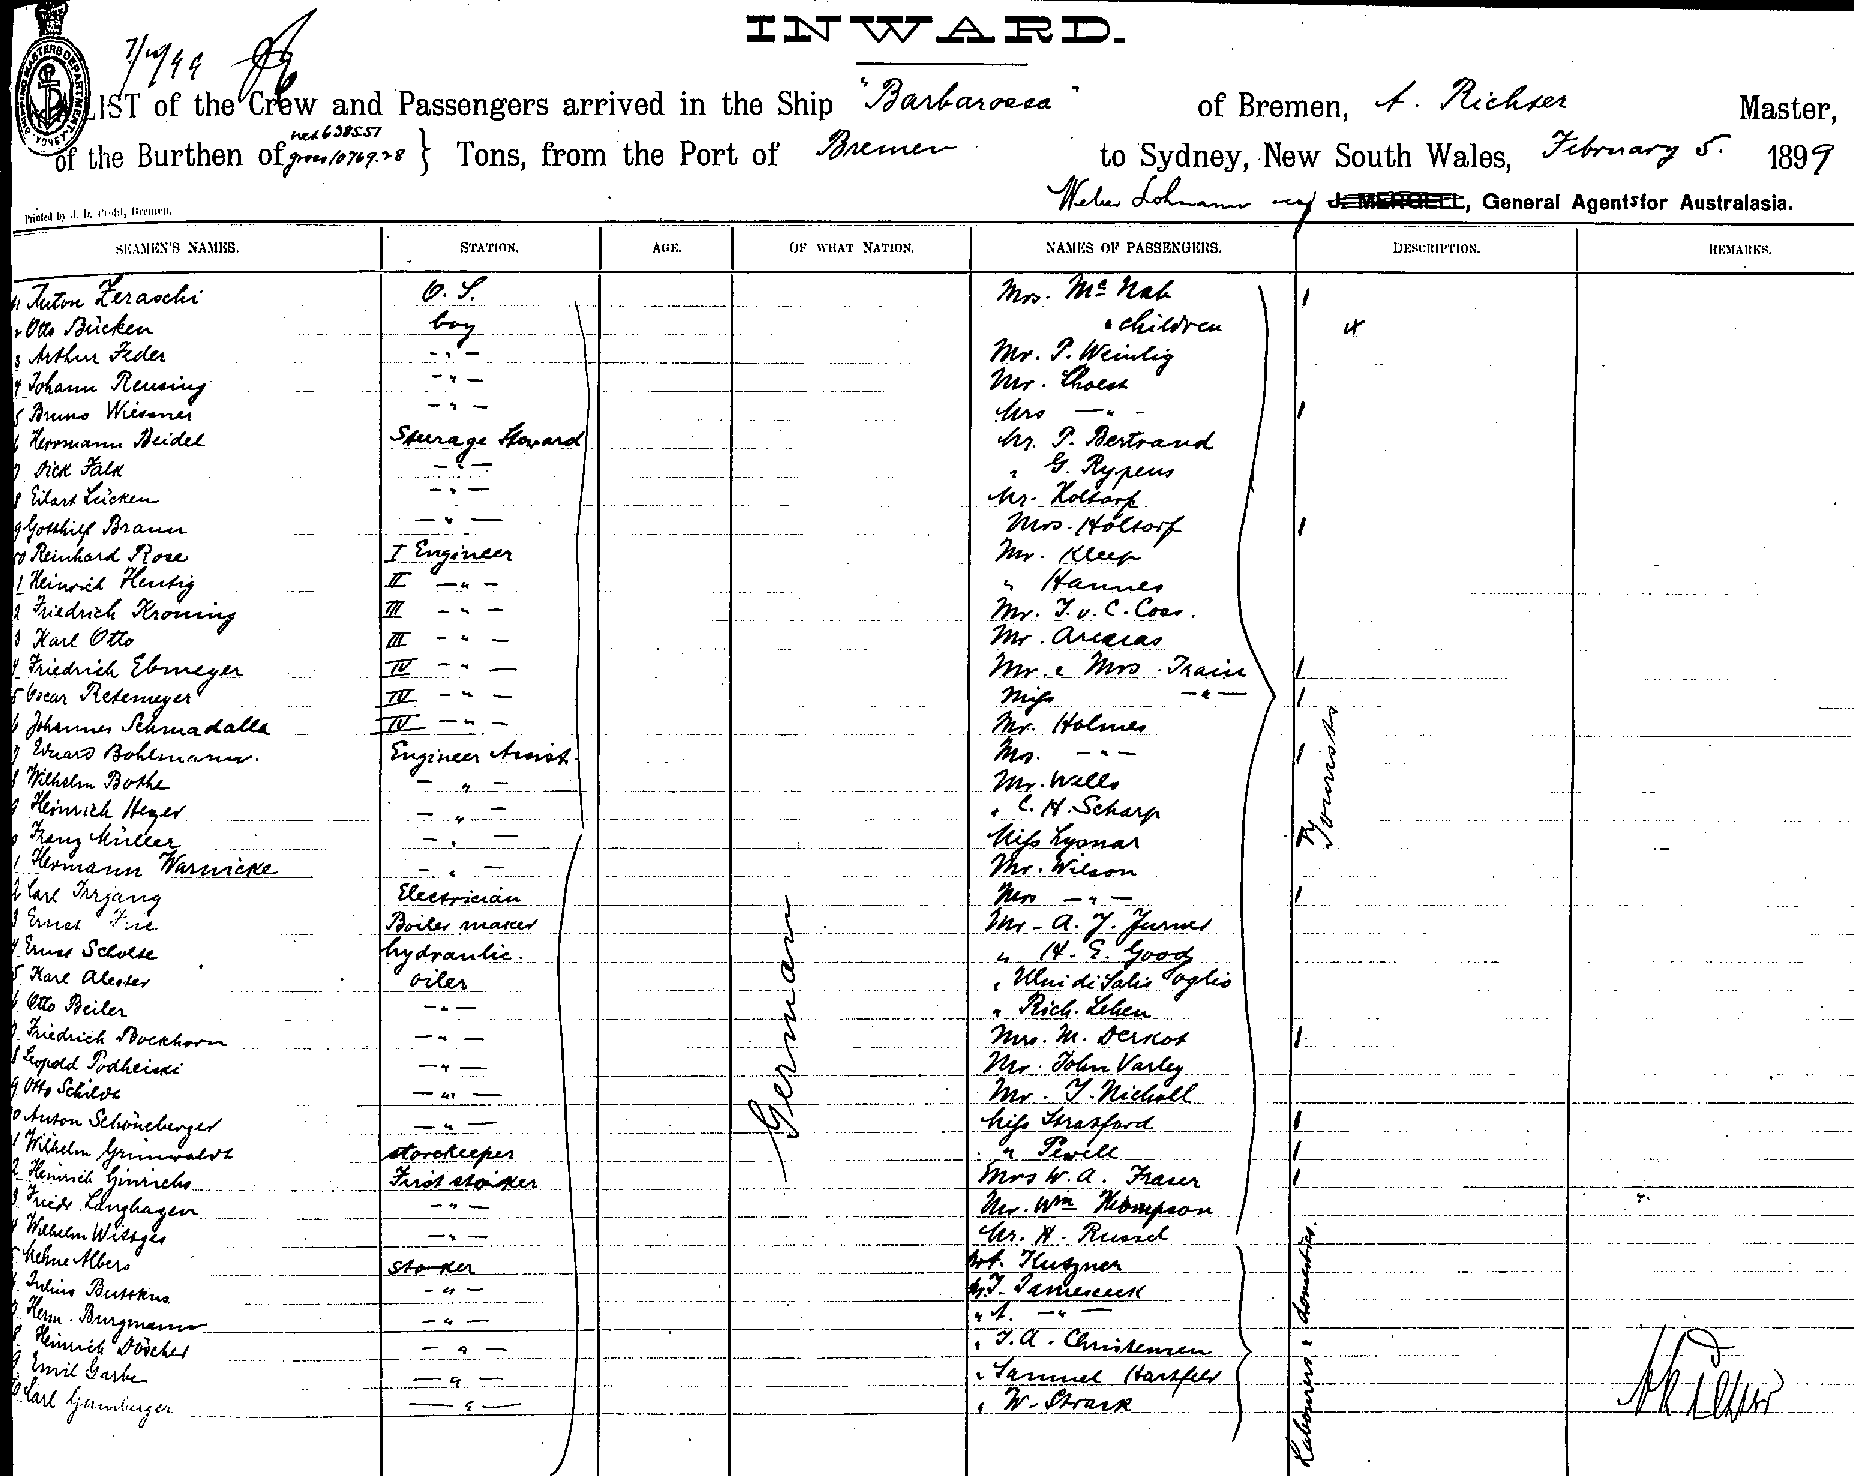 INWARD.
7/10/99
LIST of the Crew and Passengers arrived in the Ship "Barbarossa" of Bremen, A. Richter Master,
net 6385.51
of the Burthen of gross 10769.28 } Tons, from the Port of Bremen to Sydney, New South Wales, February 5. 1899
Weber Lohmann General Agents for Australasia.
Printed by Bremen.
SEAMEN'S NAMES. STATION. AGE. OF WHAT NATION. NAMES OF PASSENGERS. DESCRIPTION. REMARKS.
1 Anton Zeraschi O. S. Mrs. Mc Nab 1
2 Otto Bücken boy " children 4
3 Arthur Feder - " - Mr. P. Weinlig
4 Johann Reusing - " - Mr.
5 Bruno Wiesner - " - Mrs - " - 1
6 Herrmann Beidel Steurage Steward Mr. P. Bertrand
7 Dick Falk - " - " G. Rypens
8 Eilart Lücken - " - Mr. Holtorf
9 Gotthilf Braun - " - Mrs. Holtorf 1
50 Reinhard Rose I Engineer Mr. Kleep
1 Heinrich Hentig II - " - " Hannes
2 Friedrich Kroning III - " - Mr. J. v. C. Coss.
3 Karl Otto III - " - Mr.
4 Friedrich Ebmeyer IV - " - Mr. & Mrs. Train 1
5 Oscar Retemeyer IV - " - Miss - " - 1
6 Johannes Schmadalla IV - " - Mr. Holmes
7 Eduard Bohlmann. Engineer Assist. Mrs. - " - 1
8 Wilhelm Bothe - " - Mr. Wells
9 Heinrich Heyer - " - " C. H. Scharp
0 Franz Müller - " - Miss Lysnar 1
1 Hermann Warnicke - " - Mr. Wilson
2 Carl Irrgang Electrician Mrs - " - 1
3 Ernst Boiler maker Mr. A. J. Turner
4 Ernst Scholse hydraulic. " H. E. Good
5 Karl Alester oiler " di Salis Soglio
6 Otto Beiler - " - " Rich. Lehen
7 Friedrich Bockhorn - " - Mrs. M. Derkot 1
8 Leopold Podheiski - " - Mr. John Varley
9 Otto Schildt - " - Mr. J. Nicholl
0 Anton Schöneberger - " - Miss Stratford 1
1 Wilhelm Grünwaldt storekeeper " Pewell 1
2 Heinrich Ginrichs First stoker Mrs W. A. Fraser 1
3 Friedr. Langhagen - " - Mr. Wm Thompson
4 Wilhelm Wittges - " - Mr. H. Russel
5 Albers stoker Kutzner
6 Julius Butskus - " - J.
7 Herm. Burgmann - " - " A. - " -
8 Heinrich Döscher - " - " J. A. Christensen
9 Emil Garbe - " - " Samuel Hartfeld
0 Carl Gernberger - " - " W. Strack
German
Tourists
Labourers & domestics.
A Richter